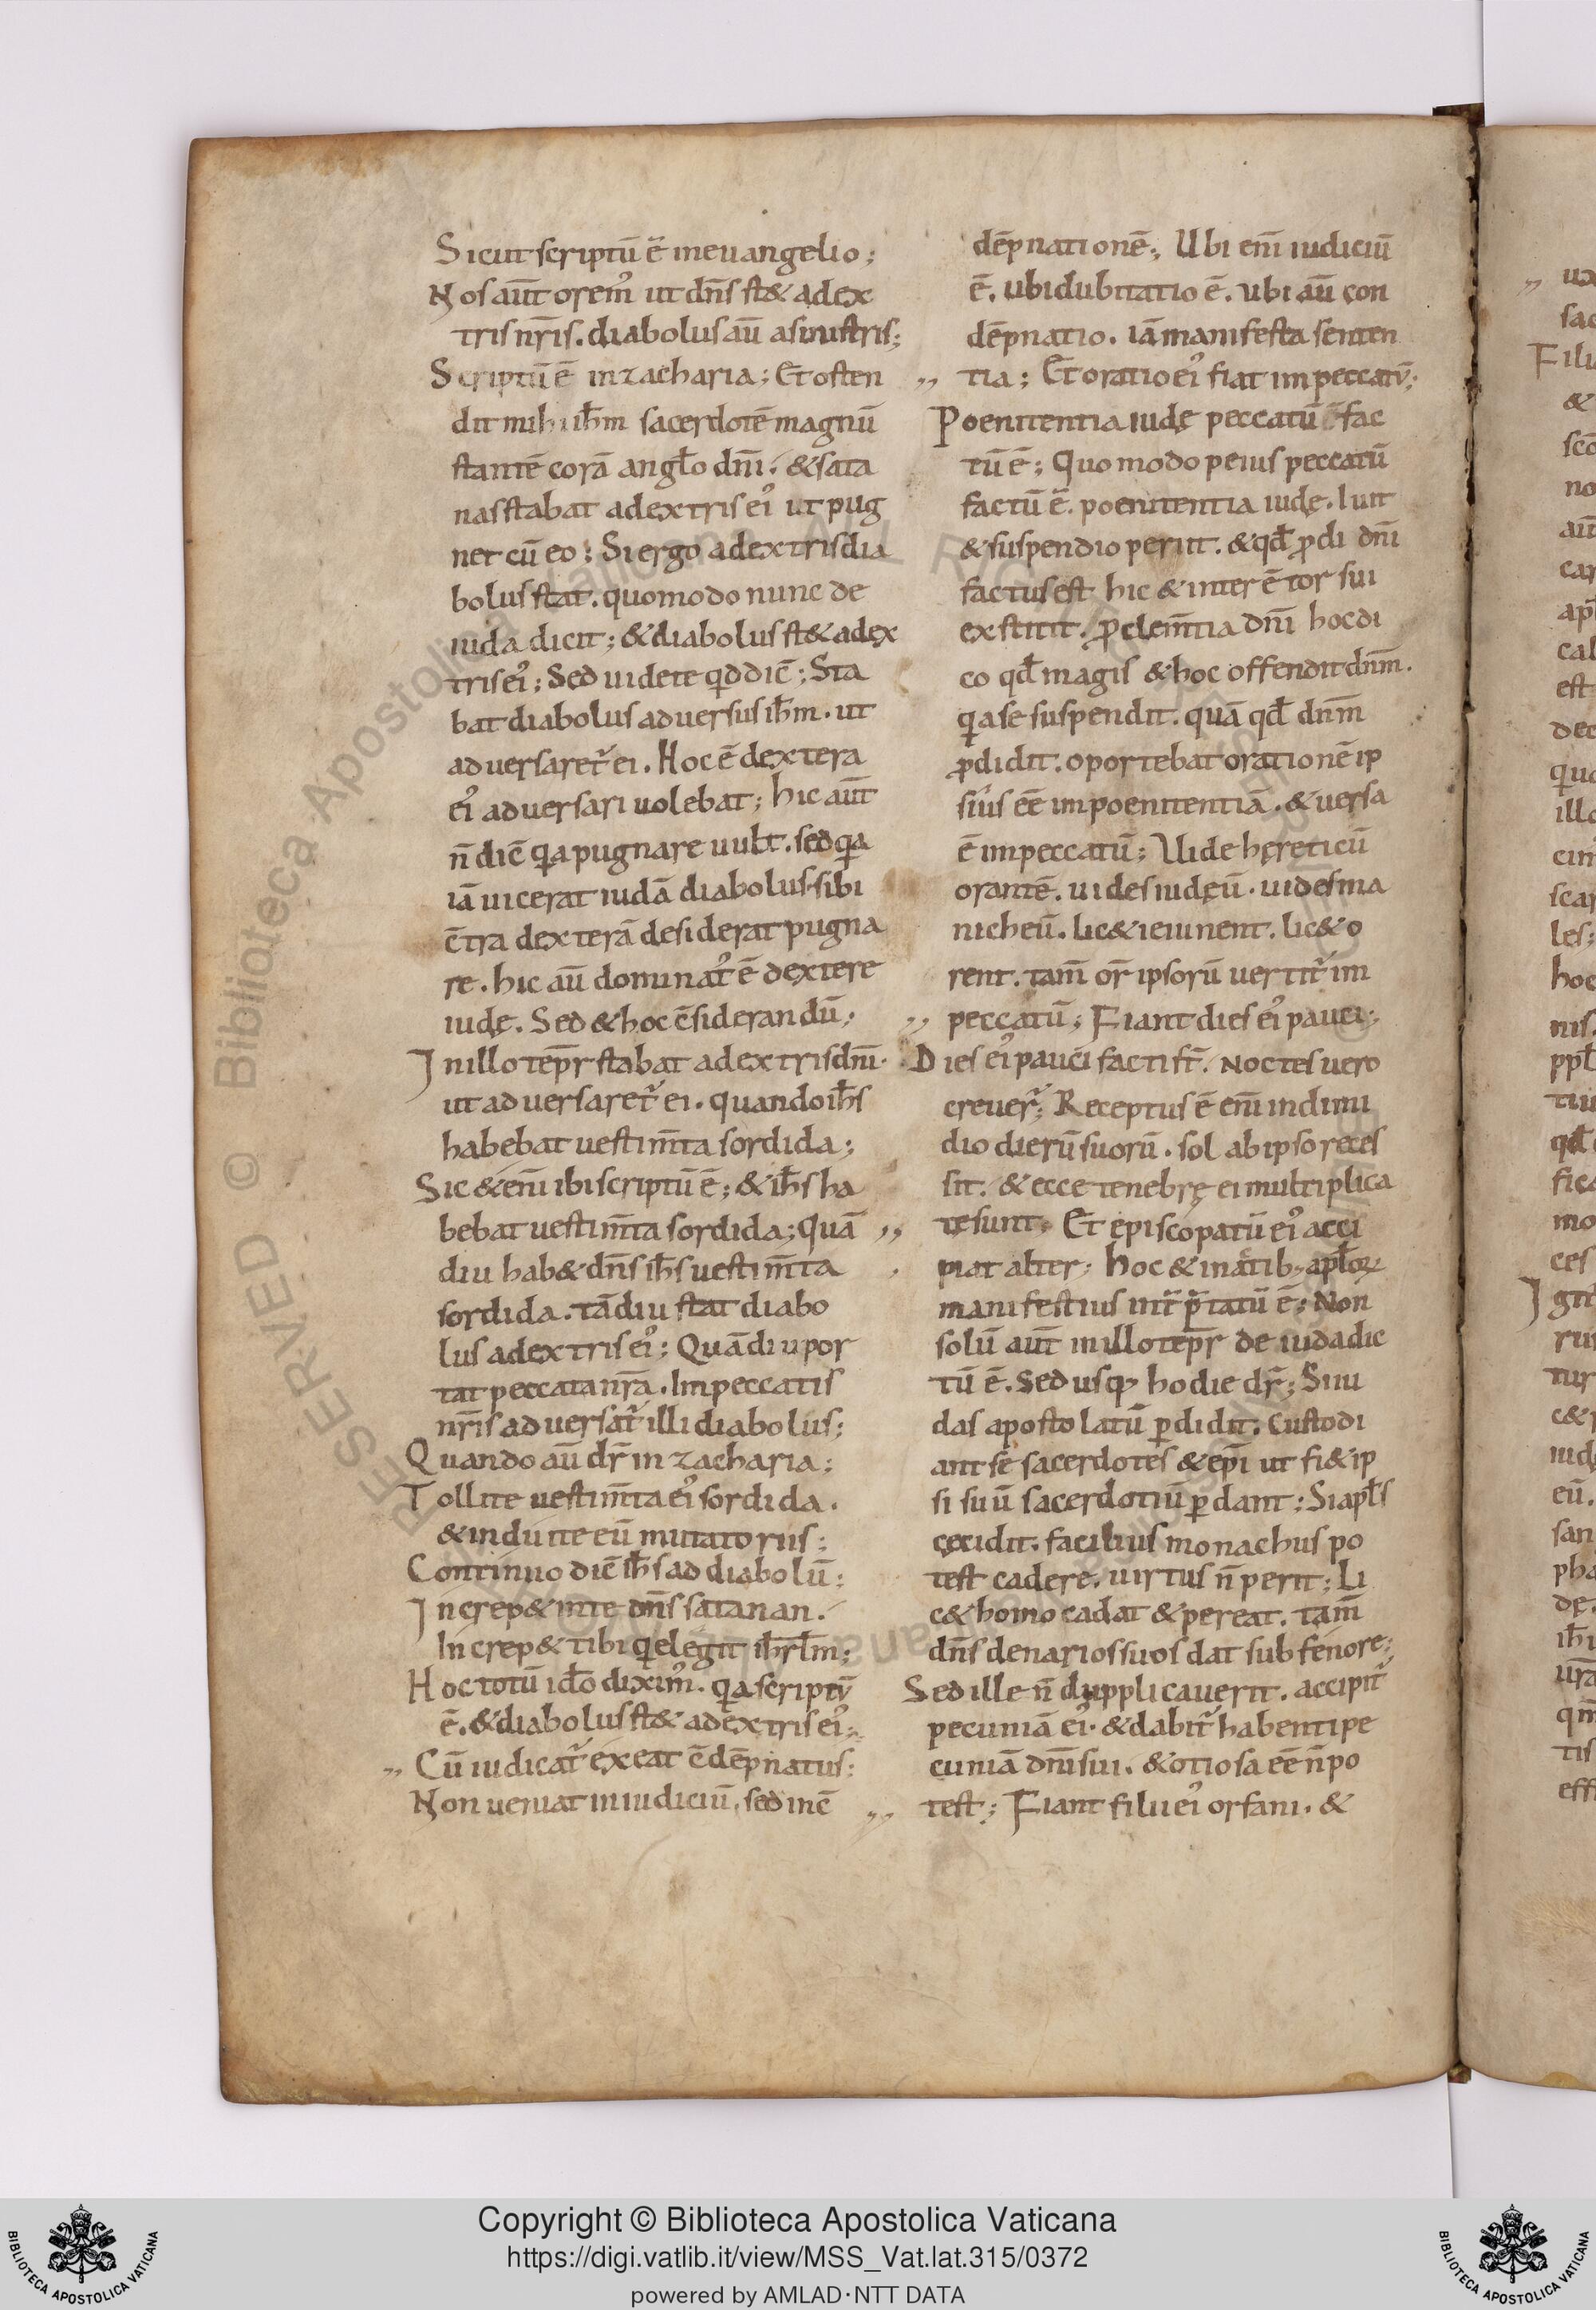 Sicut scriptū ē in euangelio;
Nos aūt orem᷒ ut dn̄s st& a dex
tris nr̄is. diabolus aū a sinistris;
Scriptū ē in zacharia; Et osten
dit mihi ih̄m sacerdotē magnū
stantē corā anglo dn̄i. & sata
nas stabat a dextris ei᷒ ut pug
net cū eo; Si ergo a dextris dia
bolus stat. quomodo nunc de
iuda dicit; & diabolus st& a dex
tris ei᷒; Sed uidete qd dic̄; Sta
bat diabolus aduersus ih̄m. ut
aduersaret᷒ ei. Hoc ē dextera
ei᷒ aduersari uolebat; hic aūt
n̄ dic̄ qa pugnare uult. sed qa
iā uicerat iudā diabolus. sibi
c̄tra dexterā desiderat pugna
re. hic aū dominat᷒ ē dextere
iudę. Sed & hoc c̄siderandū;
In illo tep̄r stabat a dextris dn̄i.
ut aduersaret᷒ ei. quando ih̄s
habebat uestim̄ta sordida;
Sic & enī ibi scriptū ē; & ih̄s ha
bebat uestim̄ta sordida; Quā
diu hab& dn̄s ih̄s uestim̄ta
sordida. tādiu stat diabo
lus a dextris ei᷒; Quādiu por
tat peccata nr̄a. In peccatis
nr̄is aduersat᷒ illi diabolus;
Quando aū dr̄ in zacharia;
Tollite uestim̄ta ei᷒ sordida.
& induite eū mutatoriis;
Continuo dic̄ ih̄s ad diabolū;
Increp& in te dn̄s satanan.
Increp& tibi qi elegit ih̄rl̄m;
Hoc totū ido dixim᷒. qa scriptū
ē. & diabolus st& a dextris ei᷒;
,, Cū iudicat᷒ exeat c̄dēpnatus;
Non ueniat in iudiciū. sed in c̄
dēpnationē; Ubi enī iudiciū
ē. ubi dubitatio ē. ubi aū con
dēpnatio. iā manifesta senten
,, tia; Et oratio ei᷒ fiat in peccatū;
Poenitentia iudę peccatū fac
tū ē; Quomodo peius peccatū
factū ē. poenitentia iudę. Iuit
& suspendio periit. & qd̄ p̄di dn̄i
factus est hic & inter ē tor sui
exstitit. ꝓ clem̄tia dn̄i hoc di
co qd̄ magis & hoc offendit dn̄m.
qa se suspendit. quā qd̄ dn̄m
ꝓdidit. oportebat orationē ip
sius eē in poenitentiā. & uersa
ē in peccatū; Uide hęreticū
orantē. uides iudęū. uides ma
nicheū. lic& ieiunent. lic& o
rent. tam̄ or̄ ipsorū uertit᷒ im
,, peccatū; Fiant dies ei᷒ pauci;
Dies ei᷒ pauci facti s̄t. Noctes uero
creuer᷒; Receptus ē enī in dimi
dio dierū suorū. sol ab ipso reces
sit. & ecce tenebrę ei multiplica
,, te sunt. Et episcopatū ei᷒ acci
piat alter; Hoc & in actib; apl̄oꝝ
manifestius int̄p̄tatū ē; Non
solū aūt in illo tep̄r de iuda dic
tū ē. Sed usq; hodie dr̄; Si iu
das apostolatū ꝑdidit. Custodi
ant se sacerdotes & ep̄i ut si & ip
si suū sacerdotiū ꝑdant; Si apl̄s
cecidit. facilius monachus po
test cadere. uirtus n̄ perit; Li
c& homo cadat & pereat. tam̄
dn̄s denarios suos dat sub fenore;
Sed ille n̄ dupplicauerit. accipit᷒
pecuniā ei᷒. & dabit᷒ habenti pe
cuniā dn̄i sui. & otiosa eē n̄ po
,, test; Fiant filii ei᷒ orfani. &
Copyright © Biblioteca Apostolica Vaticana
https://digi.vatlib.it/view/MSS_Vat.lat.315/0372
powered by AMLAD·NTT DATA
BIBLIOTECA APOSTOLICA VATICANA
BIBLIOTECA APOSTOLICA VATICANA